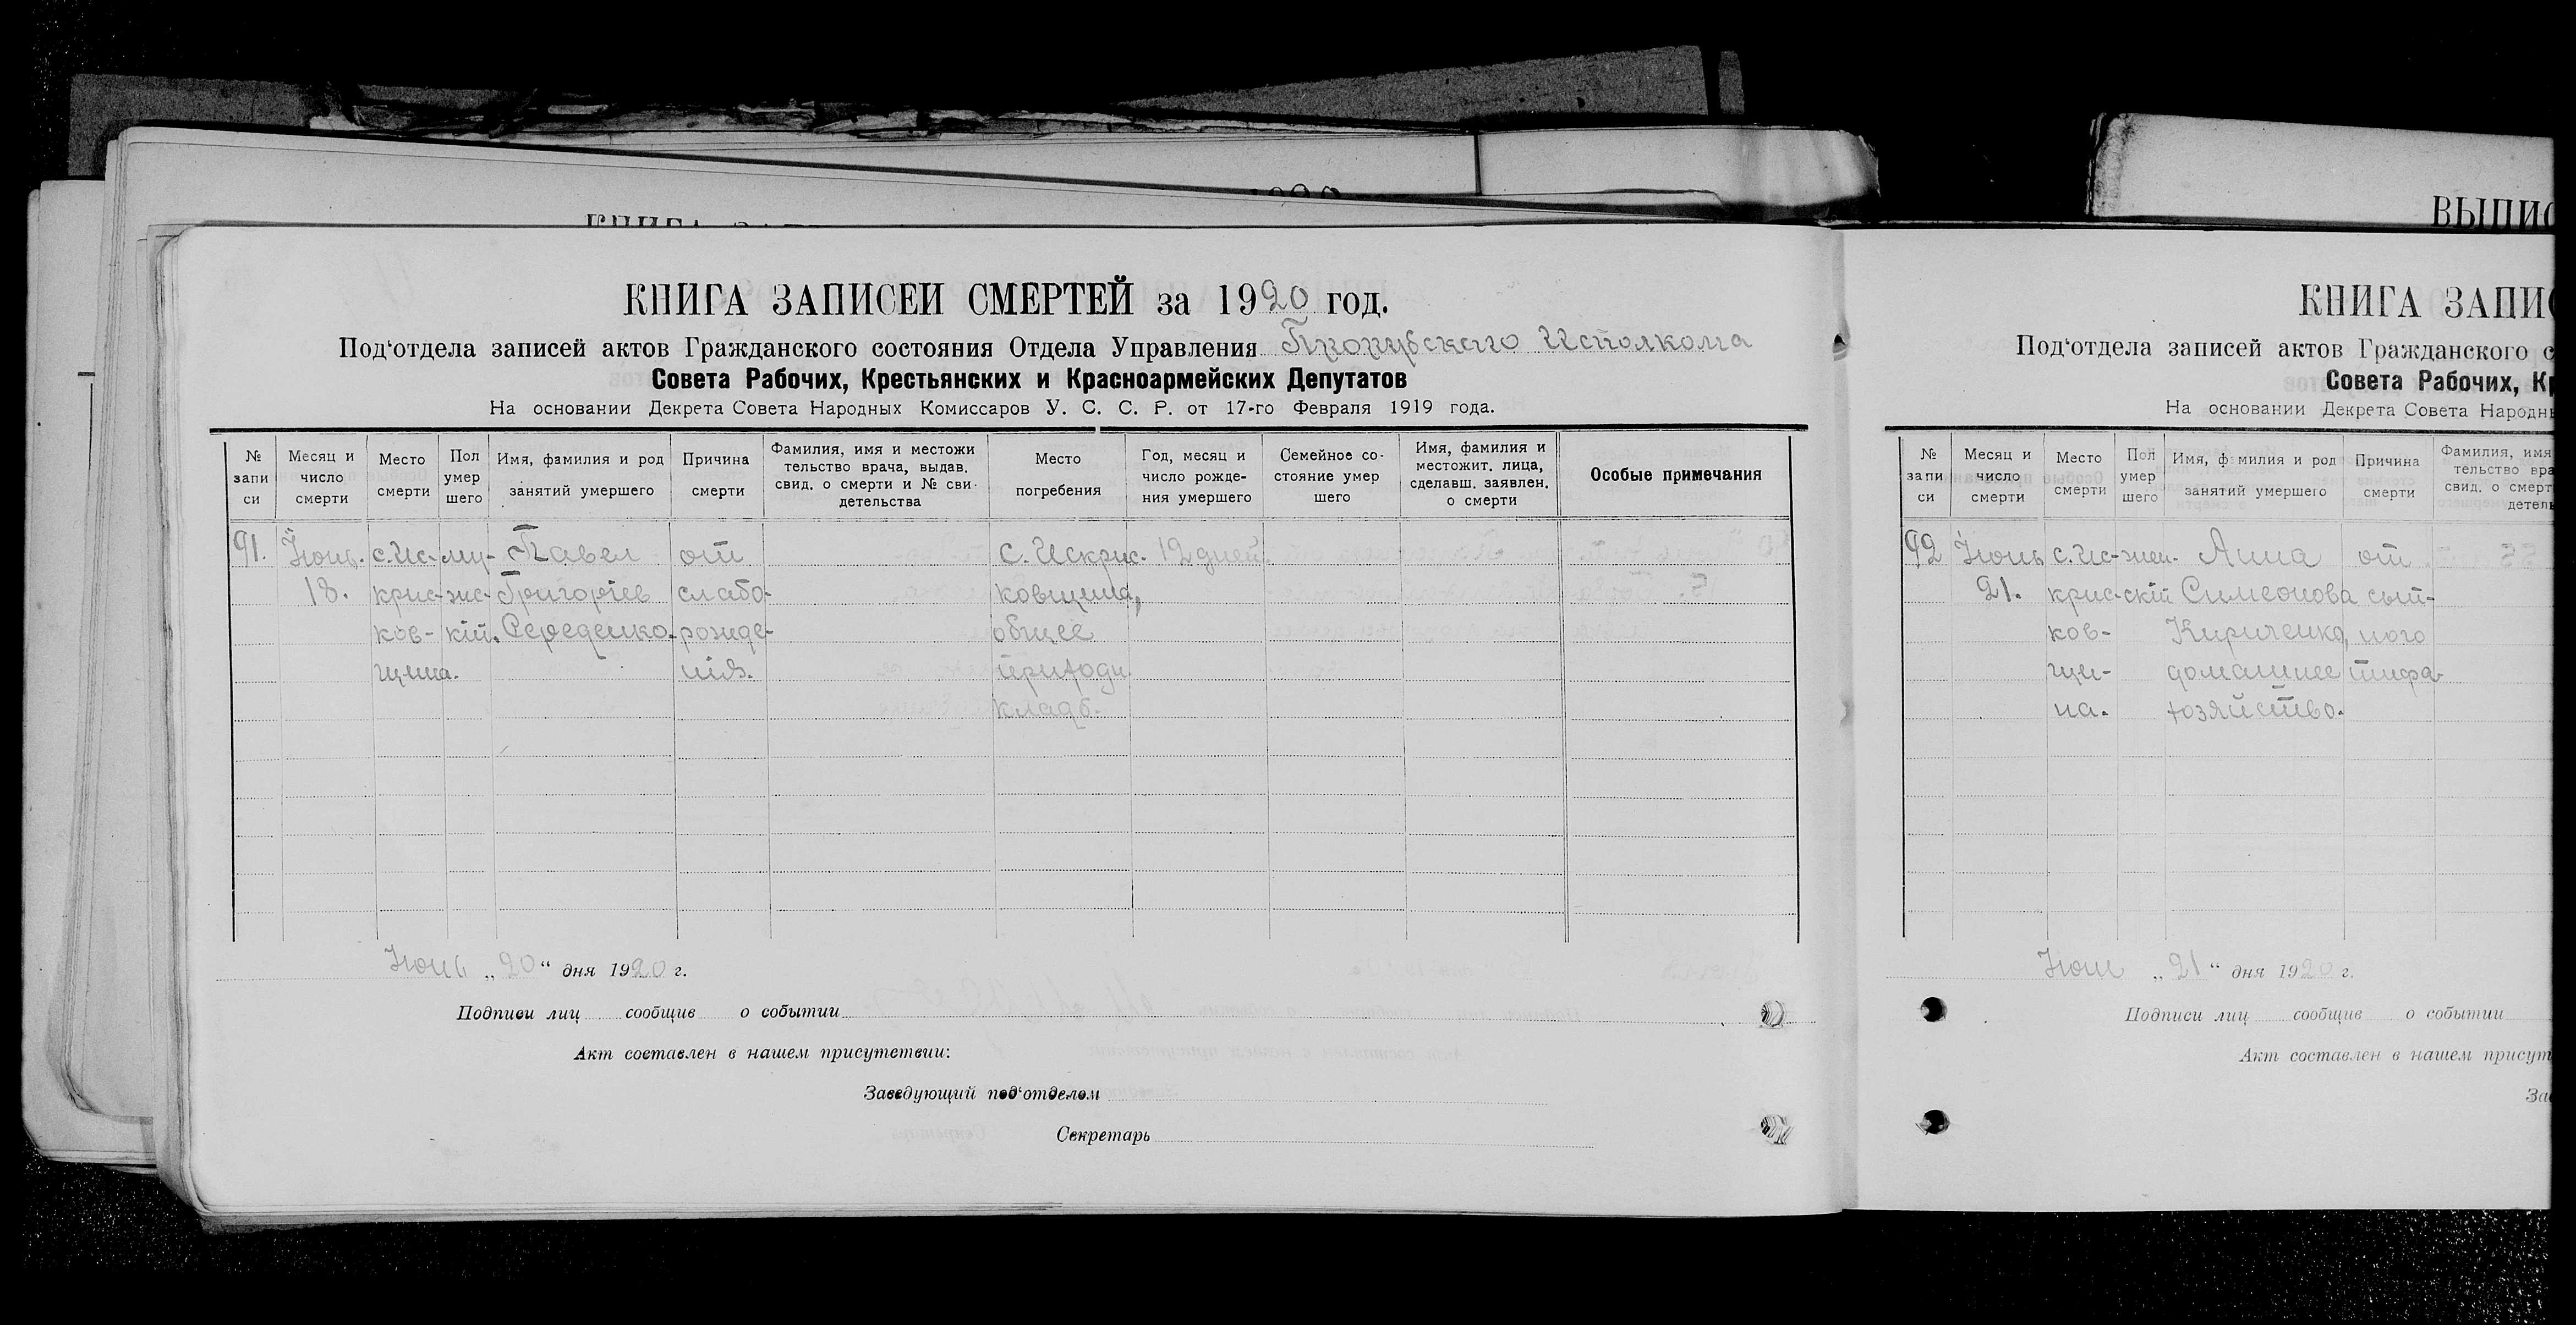 ВЫПИС
КНИГА ЗАПИСЕЙ СМЕРТЕЙ за 1920 год.
Под‘отдела записей актов Гражданского состояния Отдела Управления Исполкома
Совета Рабочих, Крестьянских и Красноармейских Депутатов
На основании Декрета Совета Народных Комиссаров У. С. С. Р. от 17-го Февраля 1919 года.
№ запи си
Месяц и число смерти
Место смерти
Пол умер шего
Имя, фамилия и род занятий умершего
Причина смерти
Фамилия, имя и местожи тельство врача, выдав. свид. о смерти и № сви- детельства
Место погребения
Год, месяц и число рожде- ния умершего
Семейное со- стояние умер шего
Имя, фамилия и местожит. лица, сделавш. заявлен. о смерти
Особые примечания
91. Іюнь. с. Ис- му- Павел от с. Искрис- 12 дней.
18. крис- жс- Григоріев слабо- ковщина,
ков- кій. Середенко. рожде- общее
щина. нія. приходи
кладб.
Іюнь „20“ дня 1920 г.
Подписи лиц сообщив о событии
Акт составлен в нашем присутствии:
Заведующий под‘отделом
Секретарь
КНИГА ЗАПИС
Под‘отдела записей актов Гражданского с
Совета Рабочих, Кр
На основании Декрета Совета Народн
№ запи си
Месяц и число смерти
Место смерти
Пол умер шего
Имя, фамилия и род занятий умершего
Причина смерти
Фамилия, имя тельство вра свид. о смерт детель
92 Іюнь с. Ис- жен- Анна от
21. крис- скій Симеонова сып-
ков- Кириченко, ного
щи- домашнее тифа
на. хозяйство.
Іюнь „21“ дня 1920 г.
Подписи лиц сообщив о событии
Акт составлен в нашем присут
За